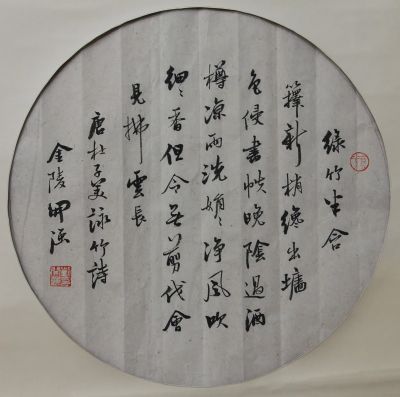 綠竹半含
籜新梢纔出墻
色侵書帙晚陰過酒
樽凉雨洗娟〻淨風吹
細〻香但令无剪伐會
見拂雲長
唐杜子美詠竹詩
金陵